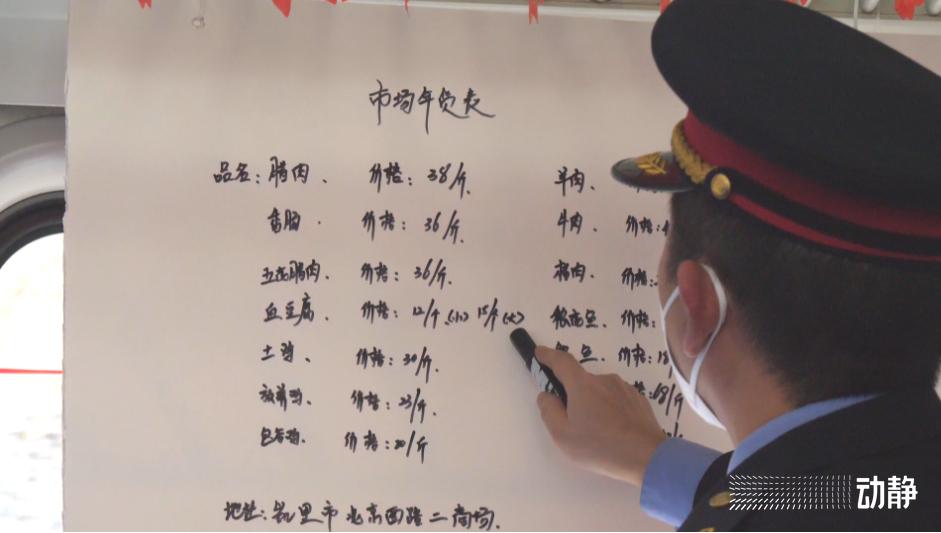 市场年货表
品名：腊肉、 价格：38/斤. 羊肉、
香肠. 价格：36/斤. 牛肉、 价格：
五花腊肉 价格：36/斤. 猪肉. 价格：
血豆腐. 价格：12/个(小) 15/个(大) 价格：
土鸡、 价格：30/斤. 鱼. 价格：18
放养鸡、 价格：23/斤. 格：18/斤
包谷鸡. 价格：20/斤
地址：凯里市北京西路二商场.
动静